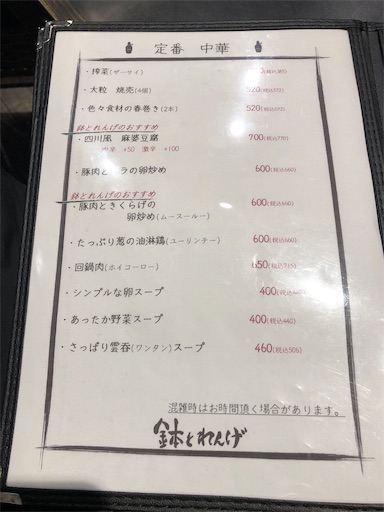 定番 中華
・搾菜(ザーサイ)
・大粒 焼売(4個) 520(税込572)
・色々食材の春巻き(2本) 520(税込572)
鉢とれんげのおすすめ
・四川風 麻婆豆腐 700(税込770)
+50 激辛 +100
・豚肉と ラの卵炒め 600(税込660)
鉢とれんげのおすすめ
・豚肉ときくらげの 600(税込660)
卵炒め(ムースールー)
・たっぷり葱の油淋鶏(ユーリンチー) 600(税込660)
・回鍋肉(ホイコーロー) 650(税込715)
・シンプルな卵スープ 400(税込440)
・あったか野菜スープ 400(税込440)
・さっぱり雲呑(ワンタン)スープ 460(税込506)
混雑時はお時間頂く場合があります。
鉢とれんげ